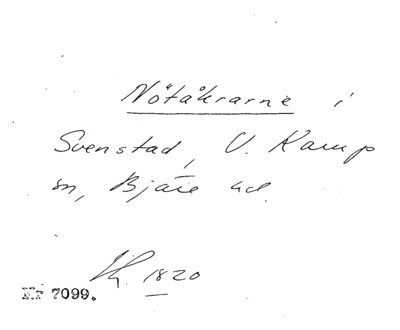 Nötåkrarne i
Svenstad, V. Karup
sn, Bjäre hd.
1820
Nr 7099.